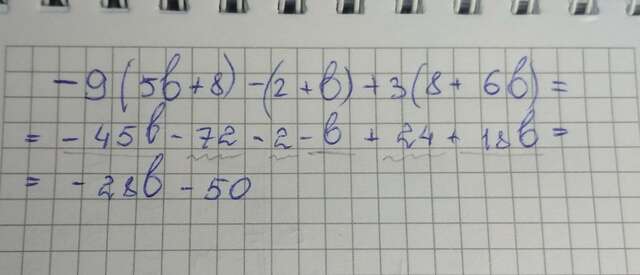 -9(5b+8)-(2+b)+3(8+6b)=
= -45b-72-2-b+24+18b=
= -28b-50